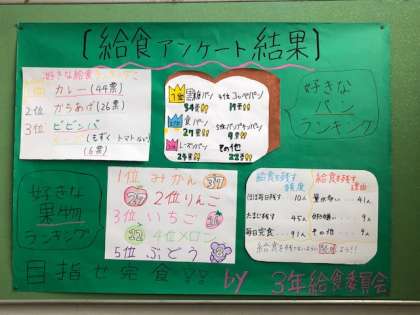 【給食アンケート結果】
好きな給食ランキング
カレー(44票)
2位 からあげ(26票)
3位 ビビンバ
(6票)
1位 黒糖パン
34票!!
2位 食パン
27票!!
3位 レーズンパン
24票!!
4位 コッペパン
その他
22票!!
好きな
パン
ランキング
好きな
果物
ランキング
1位 みかん 37
27 2位りんご
3位 いちご
22 4位メロン
5位 ぶどう
給食を残す
頻度
ほぼ毎日残す 10人
たまに残す 45人
毎日完食 91人
給食を残す
理由
量が多い 41人
好き嫌い 9人
その他 9人
目指せ完食!!
by 3年給食委員会